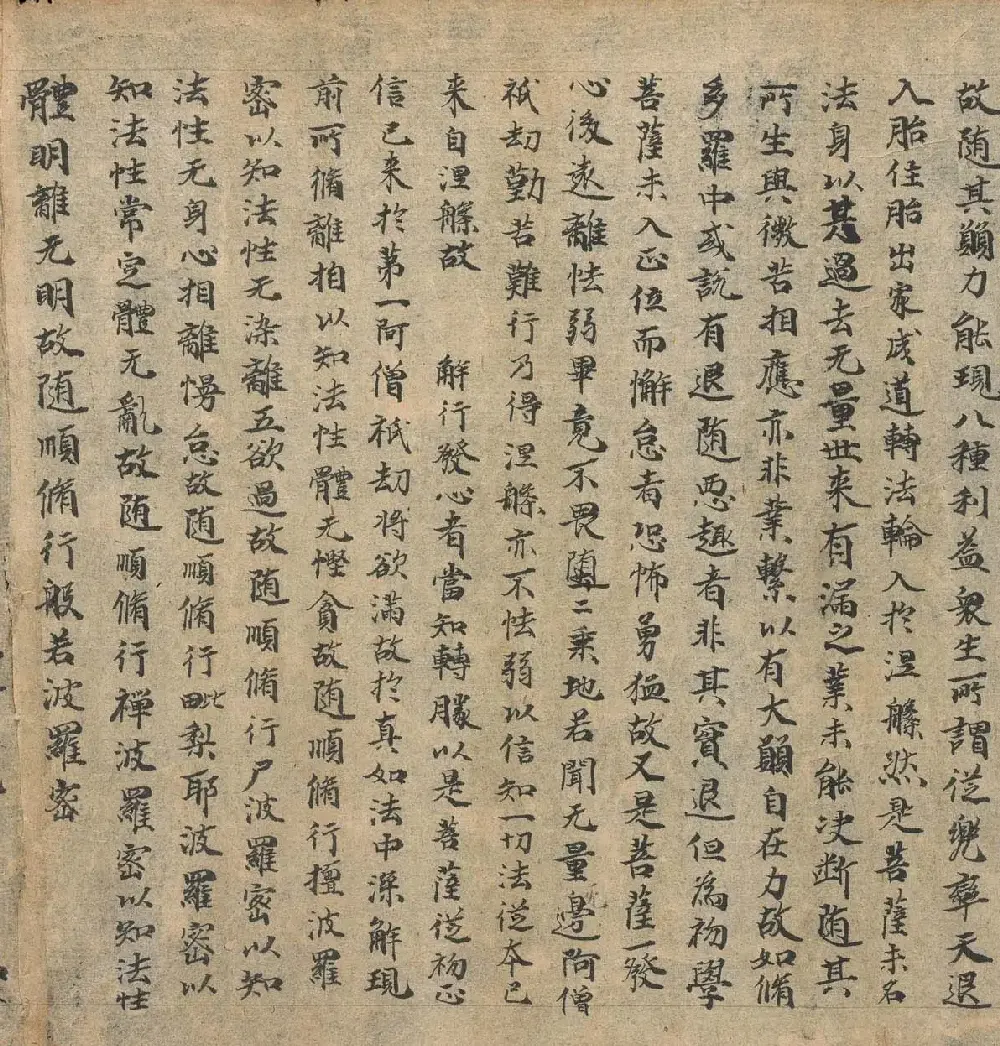 故随其願力能現八種利益衆生所謂從兜率天退
入胎住胎出家成道轉法輪入於涅槃然是菩薩未名
法身以其過去无量世来有漏之業未能决断随其
所生與微苦相應亦非業繫以有大願自在力故如脩
多羅中或說有退随惡趣者非其實退但為初學
菩薩未入正位而懈怠者恐怖勇猛故又是菩薩一發
心後遠離怯弱畢竟不畏墮二乗地若聞无量邊阿僧
祇劫勤苦難行乃得涅槃亦不怯弱以信知一切法從本已
来自涅槃故　　解行發心者當知轉勝以是菩薩從初正
信已来於第一阿僧祇劫将欲滿故於真如法中深解現
前所脩離相以知法性體无慳貪故随順脩行檀波羅
密以知法性无染離五欲過故随順脩行尸波羅密以知
法性无身心相離慢怠故随順脩行毗梨耶波羅密以
知法性常定體无亂故随順脩行禅波羅密以知法性
體明離无明故随順脩行般若波羅密